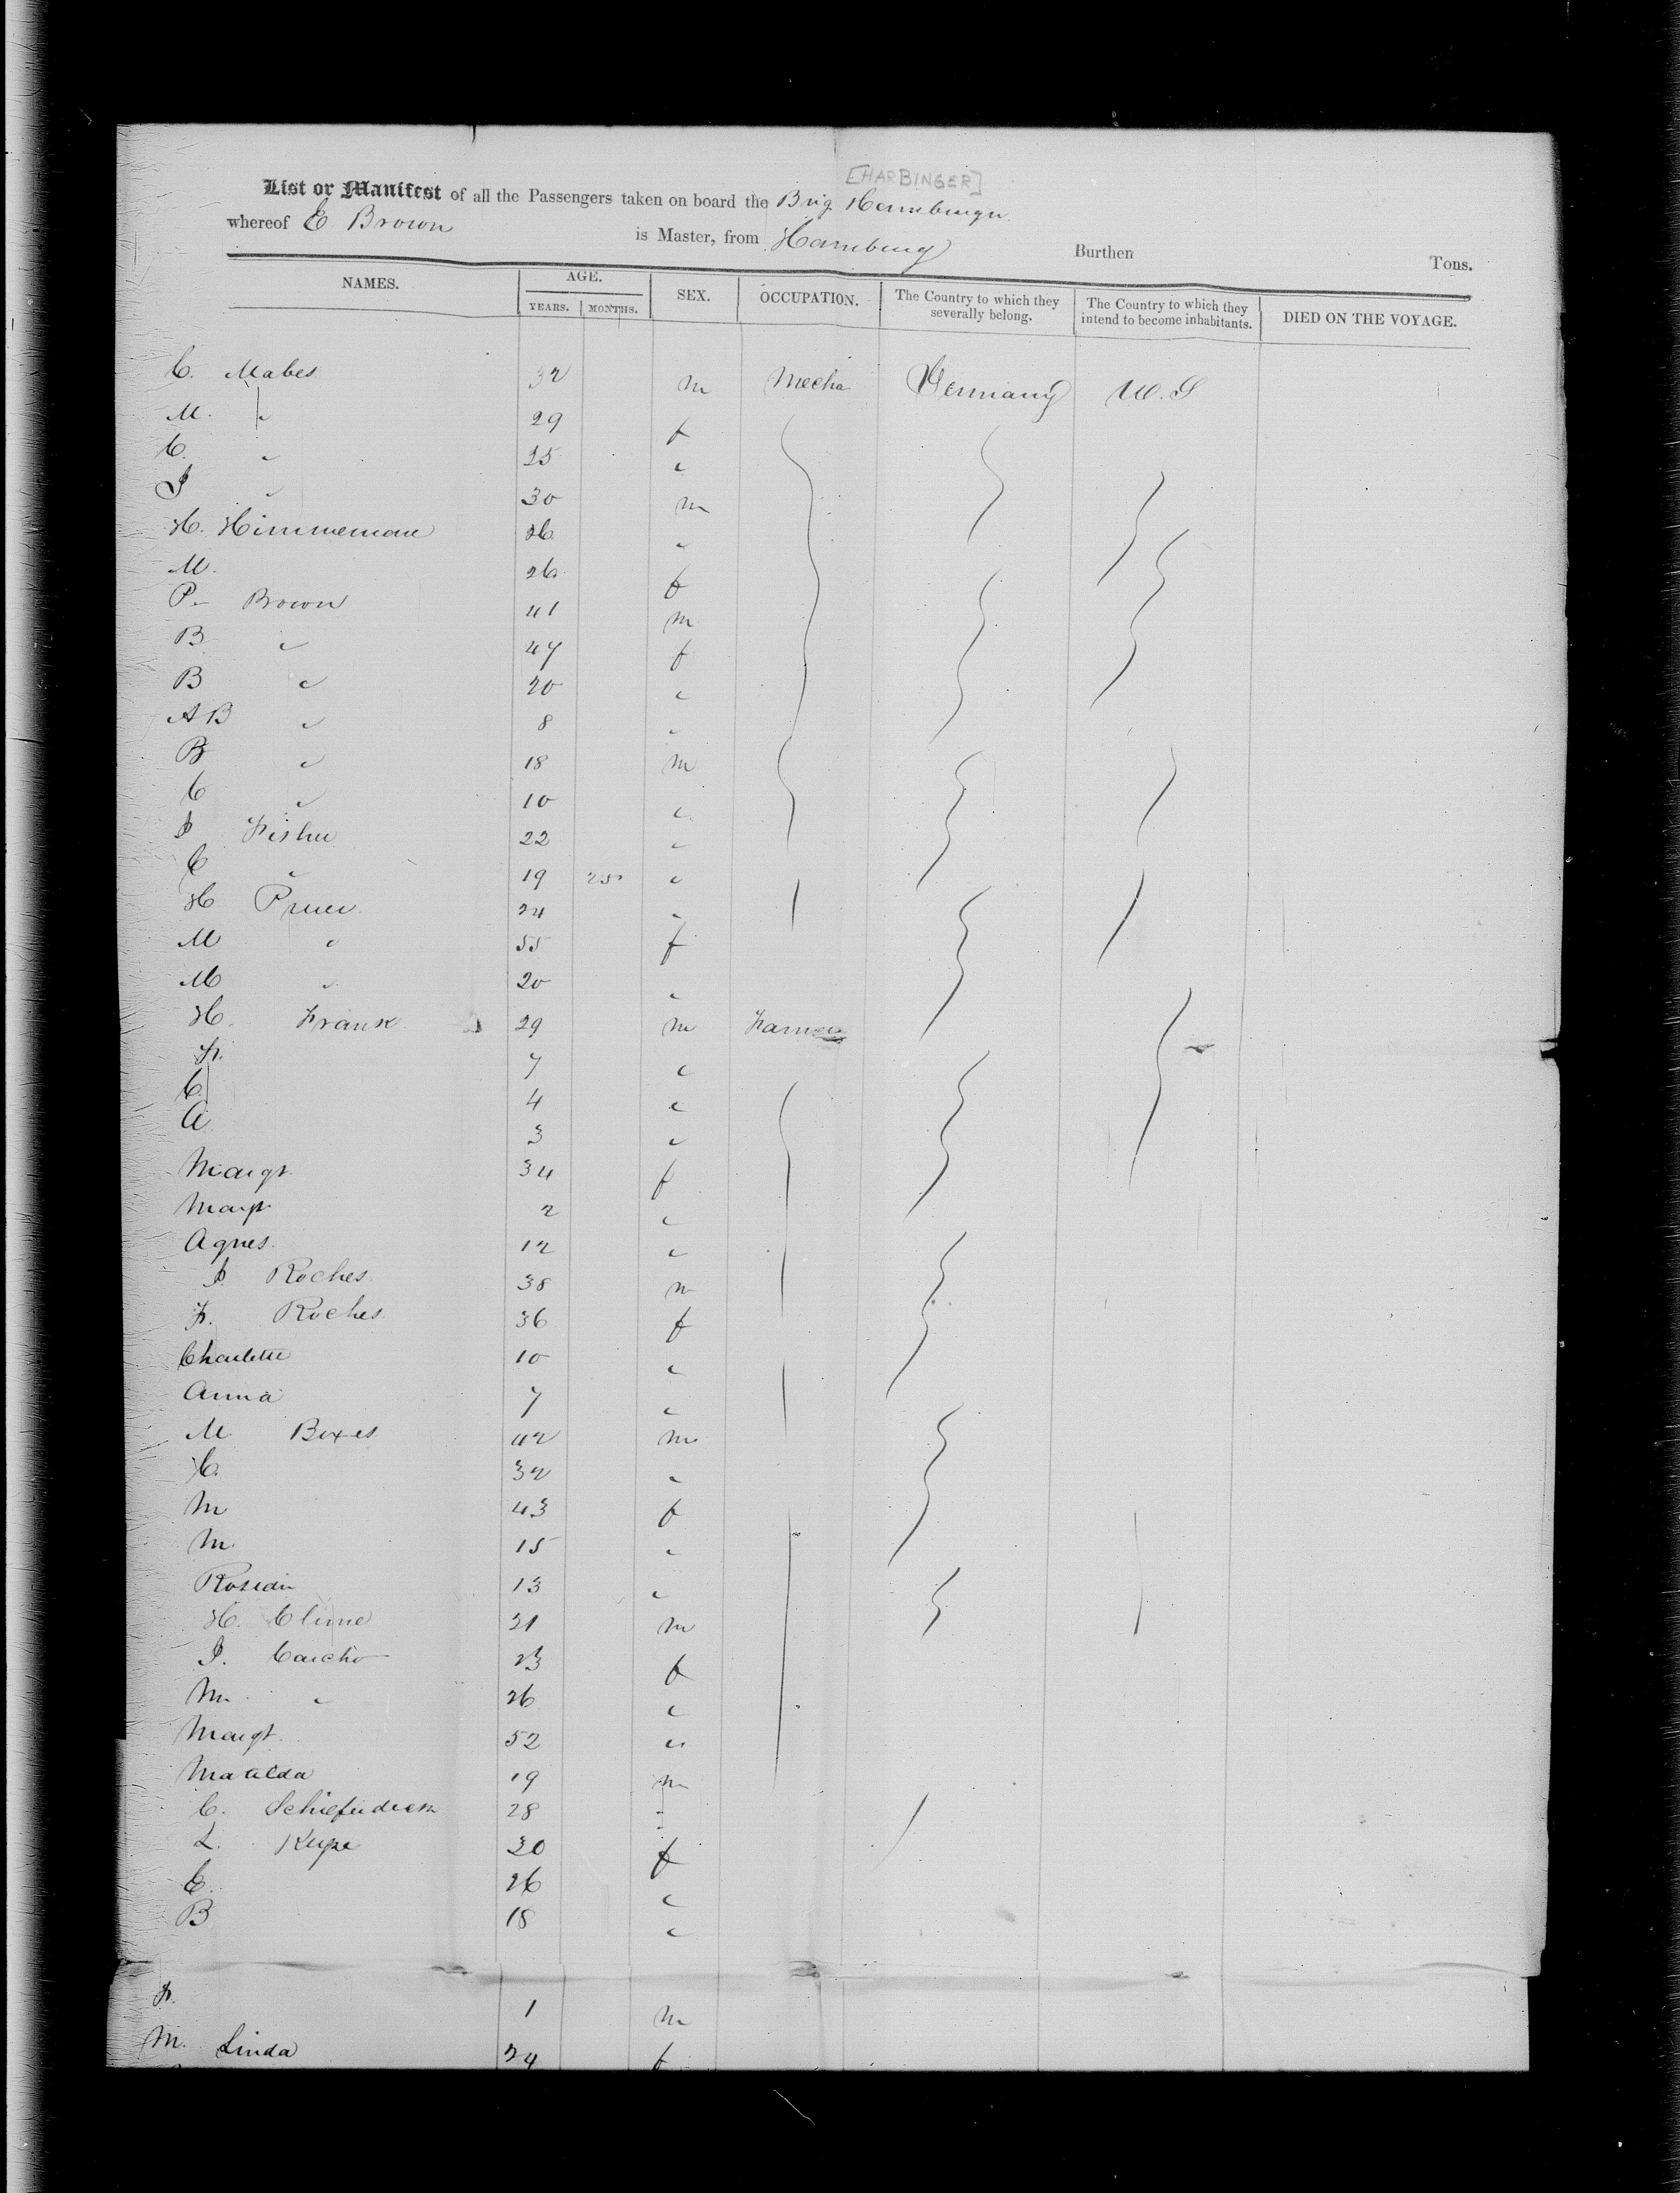 [HARBINGER]
List or Manifest of all the Passengers taken on board the Brig
whereof E Brown is Master, from Hamburg Burthen Tons.
NAMES. AGE. YEARS. MONTHS. SEX. OCCUPATION. The Country to which they severally belong. The Country to which they intend to become inhabitants. DIED ON THE VOYAGE.
C. Mabes 32 m Mecha Germany U.S
M. " 29 f
C. " 25 "
J " 30 m
H. Himmeman 26 "
M. 26 f
P. Brown 41 m
B " 47 f
B " 20 "
AB " 8 "
B " 18 m
C " 10 "
J Fisher 22 "
C " 19 25 "
H 24 "
M " 55 f
M " 20 "
H. Frank 29 m Farmer
F. 7 "
C. 4 "
A 3 "
Margt. 34 f
Margt 2 "
Agnes. 12 "
J Roches 38 m
F. Roches 36 f
Charlotte 10 "
Anna 7 "
M. Boxes 42 m
C. 32 "
M 43 f
M. 15 "
13 "
H. Clime 31 m
J. 23 f
M. " 26 "
Margt. 52 "
Matilda 19 m
C. 28 "
L. 30 f
E. 26 "
B 18 "
F. 1 m
M. Linda 24 f